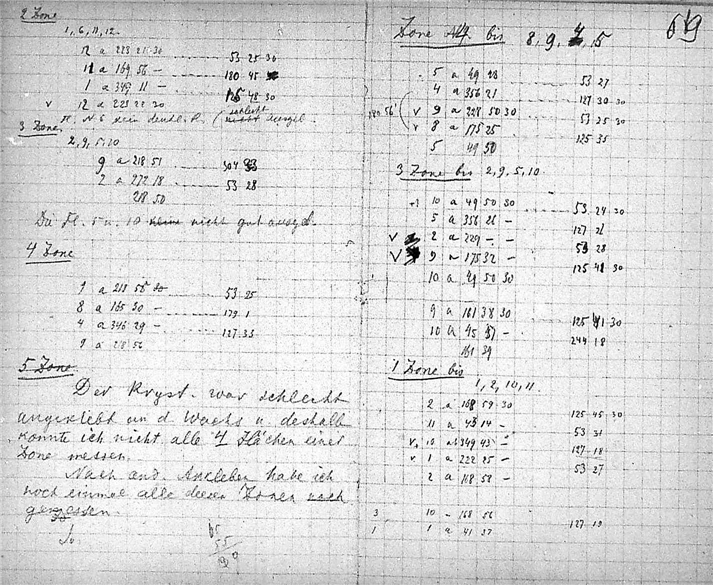 2 Zone
1, 6, 11, 12.
12 a 223 21 30
53 25 30
11 a 169 56 –
180 45
1 a 349 11 –
48 30
v 12 a 223 22 30
Fl. N 6 kein deutl. R. (schlecht
3 Zone.
2, 9, 5, 10
9 a 218 51
304
2 a 272 18
53 28
218 50
Die Fl. 5 u. 10 nicht gut ausgeb.
4 Zone
9 a 218 56 30
53 25
8 a 165 30 –
179 1
4 a 346 29 –
127 33
9 a 218 56
5 Zone
Der Kryst. war schlecht
angeklebt an d. Wachs u. deshalb
konnte ich nicht alle 4 Flächen einer
Zone messen.
Nach and. Ankleben habe ich
noch einmal alle diesen Zonen nach
gemessen.
55
90
69
Zone bis 8, 9, 4, 5
5 a 49 28
53 27
4 a 356 21
127 30 30
180 56'
v 9 a 228 50 30
53 25 30
v 8 a 175 25
125 35
5 49 50
3 Zone bis 2, 9, 5, 10
10 a 49 50 30
53 24 30
5 a 356 26 –
127 26
v 2 a 229 – –
53 28
v 9 a 175 32 –
125 41 30
10 a 49 50 30
9 a 161 38 30
125 41 30
10 a 45 57 –
244 18
161 39
1 Zone bis
1, 2, 10, 11
2 a 168 59 30
125 45 30
11 a 43 14 –
53 31
v 10 a 349 43 –
127 18
v 1 a 222 25 –
53 27
2 a 168 58 –
3 10 – 168 56
127 19
1 1 a 41 37